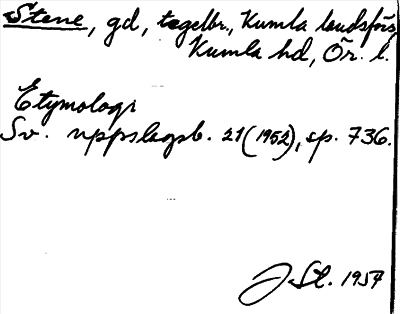 Stene, gd, tegelbr., Kumla landsförs,
Kumla hd, Ör. l.
Etymologi
Sv. uppslagsb. 27 (1952), sp. 736.
J. St. 1957